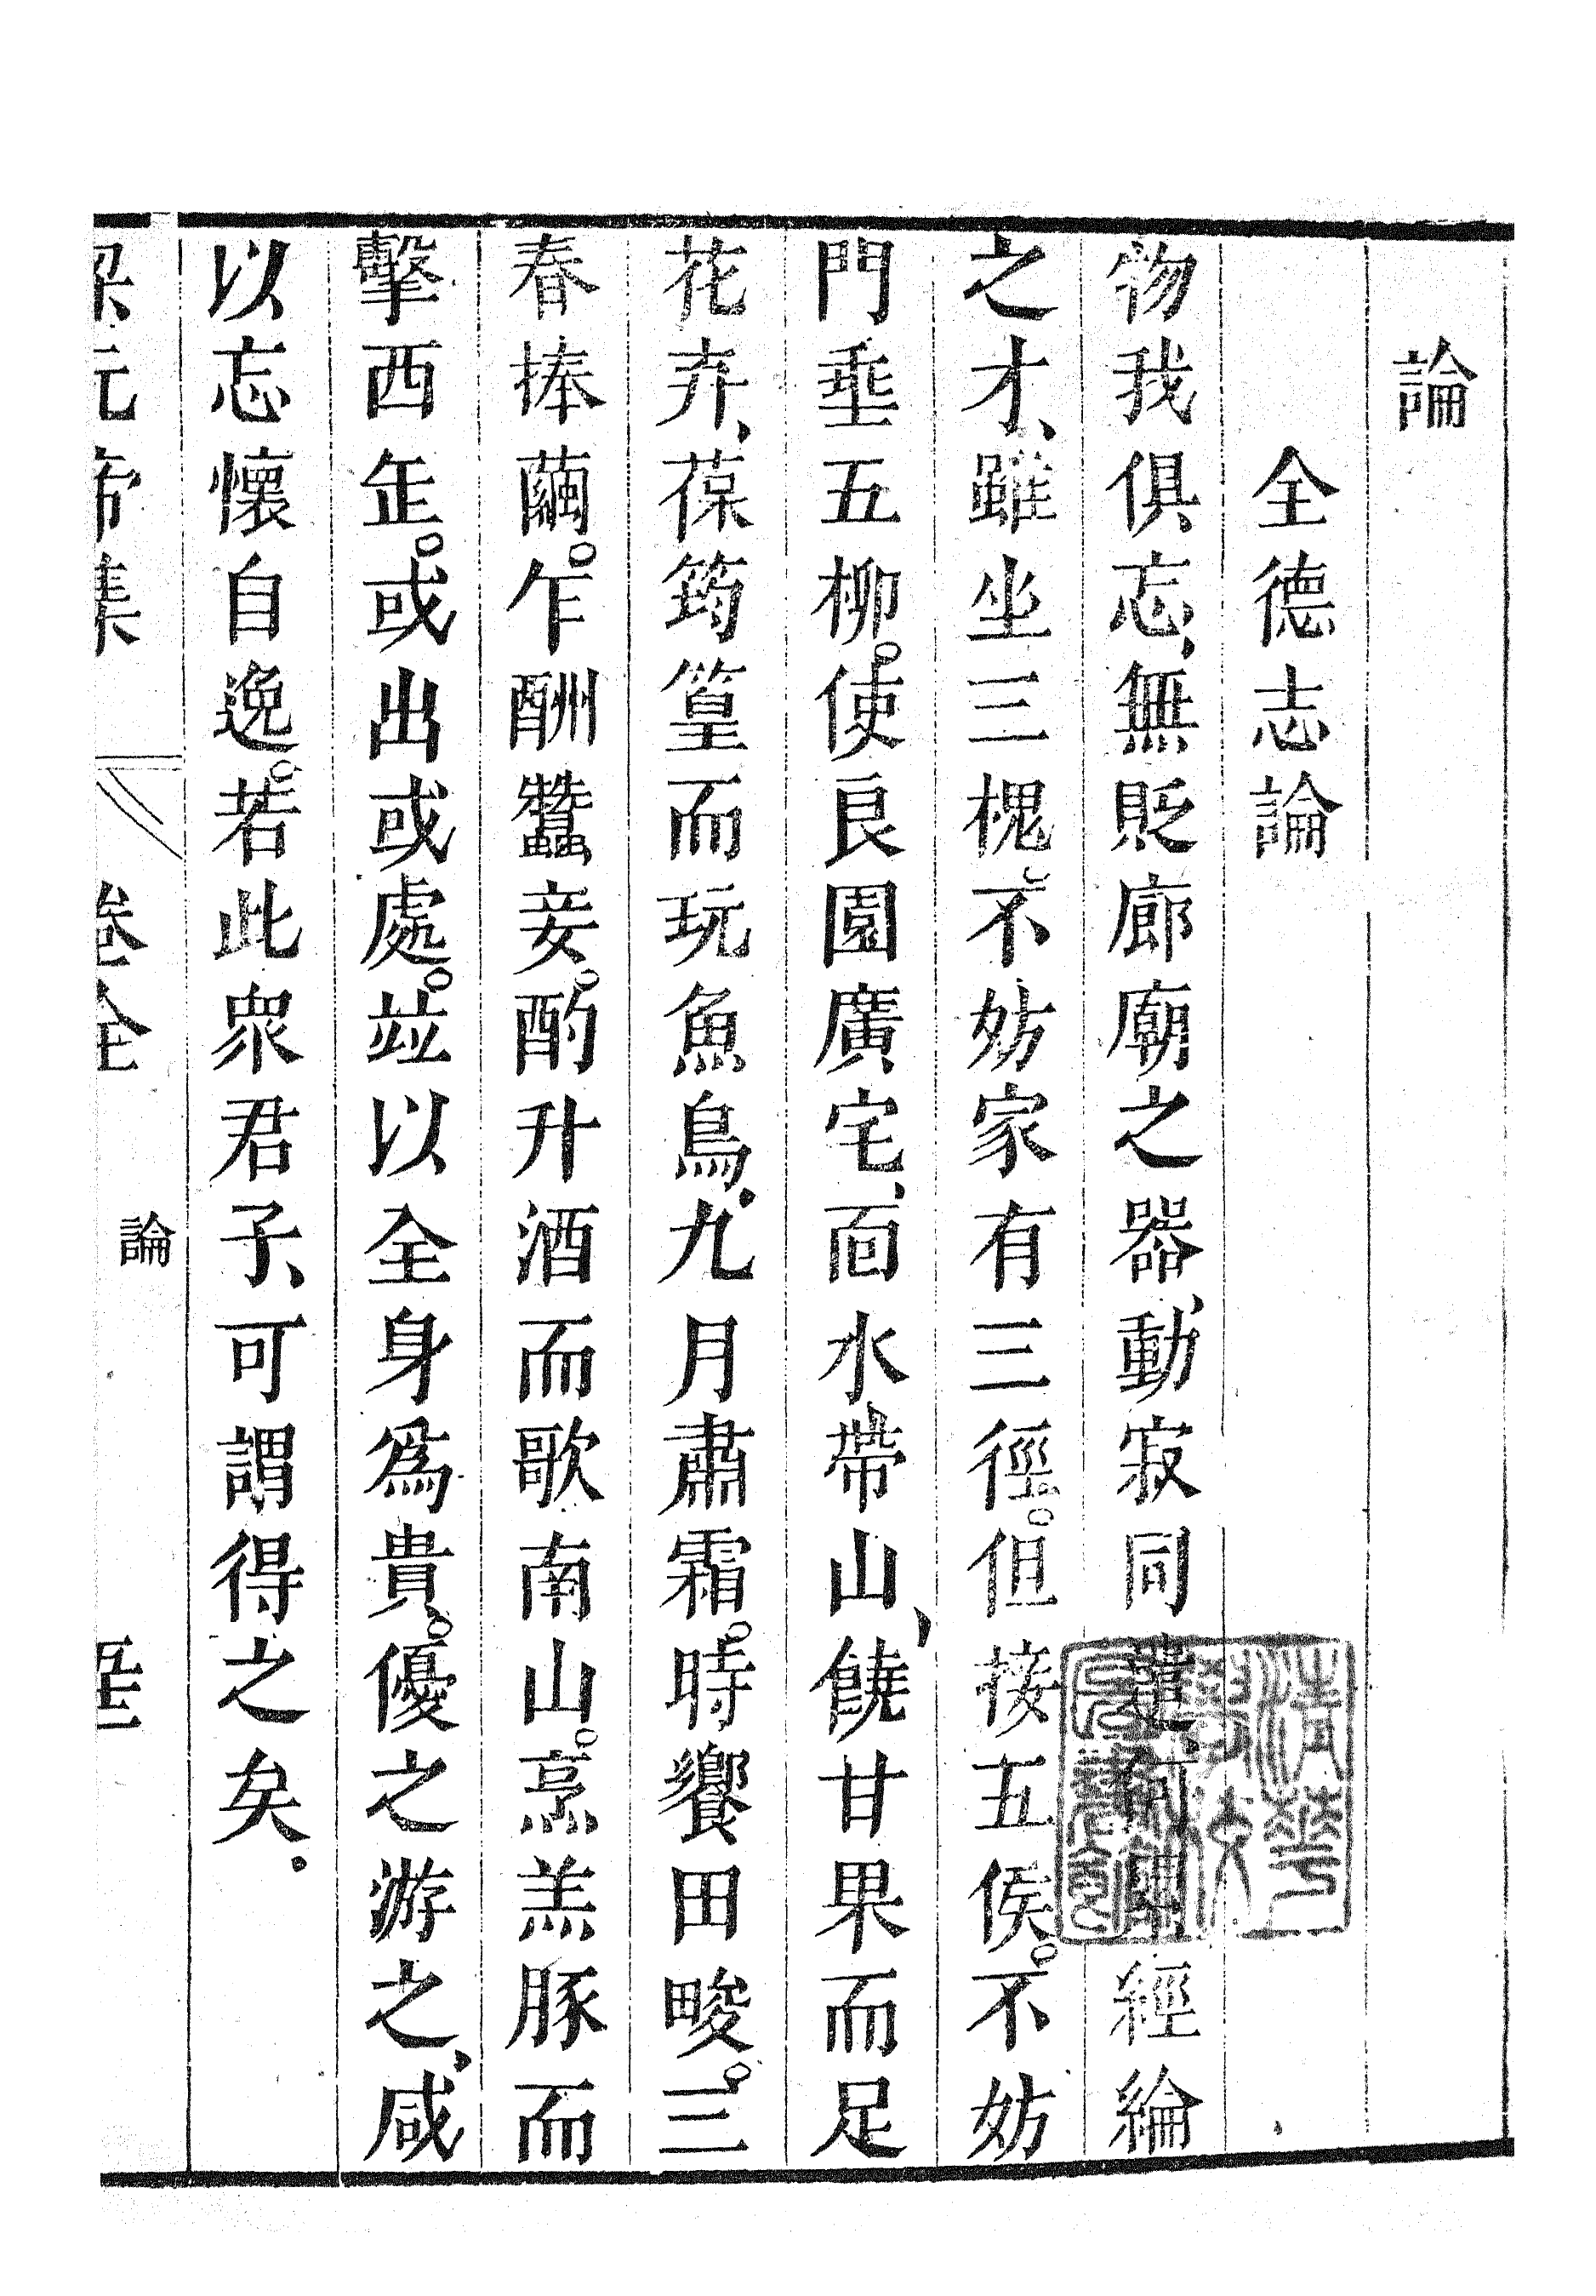 論
全德志論
物我俱忘、無貶廊廟之器、動寂同遣、何累經綸
之才、雖坐三槐。不妨家有三徑。但接五侯。不妨
門垂五柳。使良園廣宅、面水帶山、饒甘果而足
花卉、葆筠篁而玩魚鳥、九月肅霜。時饗田畯。三
春捧繭。乍酬蠶妾。酌升酒而歌南山。烹羔豚而
擊西缶。或出或處。竝以全身爲貴。優之游之、咸
以忘懷自逸。若此衆君子、可謂得之矣.
梁元帝集 卷全 論